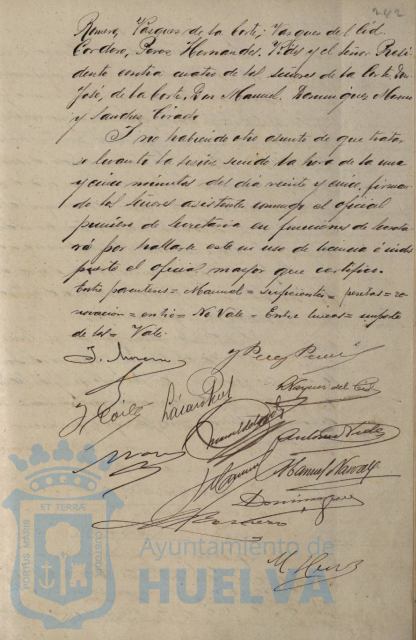 242
Romero, Vazquez de la Corte, Vazquez del Cid,
Cordero, Perez Hernandez, Vides y el Señor Presi-
dente contra cuatro de los señores de la Corte Don
José, de la Corte Don Manuel, Dominguez
y Sanchez,
Y no habiendo otro asunto de que tratar
se levantó la sesión siendo la hora de la una
y cinco minutos del dia veinte y cinco, firman-
do los Señores asistentes conmigo el oficial
primero de Secretaría en funciones de Secreta-
rio por hallarse este en uso de licencia é indis-
puesto el oficial mayor que certifico.
Entre parentesis = Manuel = suficientes = pesetas =
novacion = entró = No Vale = Entre lineas = importe
de los = Vale.
Perez
Vazquez del Cid
Antonio Vides
Manuel
Dominguez
Cordero
PORTUS MARIS ET TERRÆ CUSTODIA
Ayuntamiento de
HUELVA